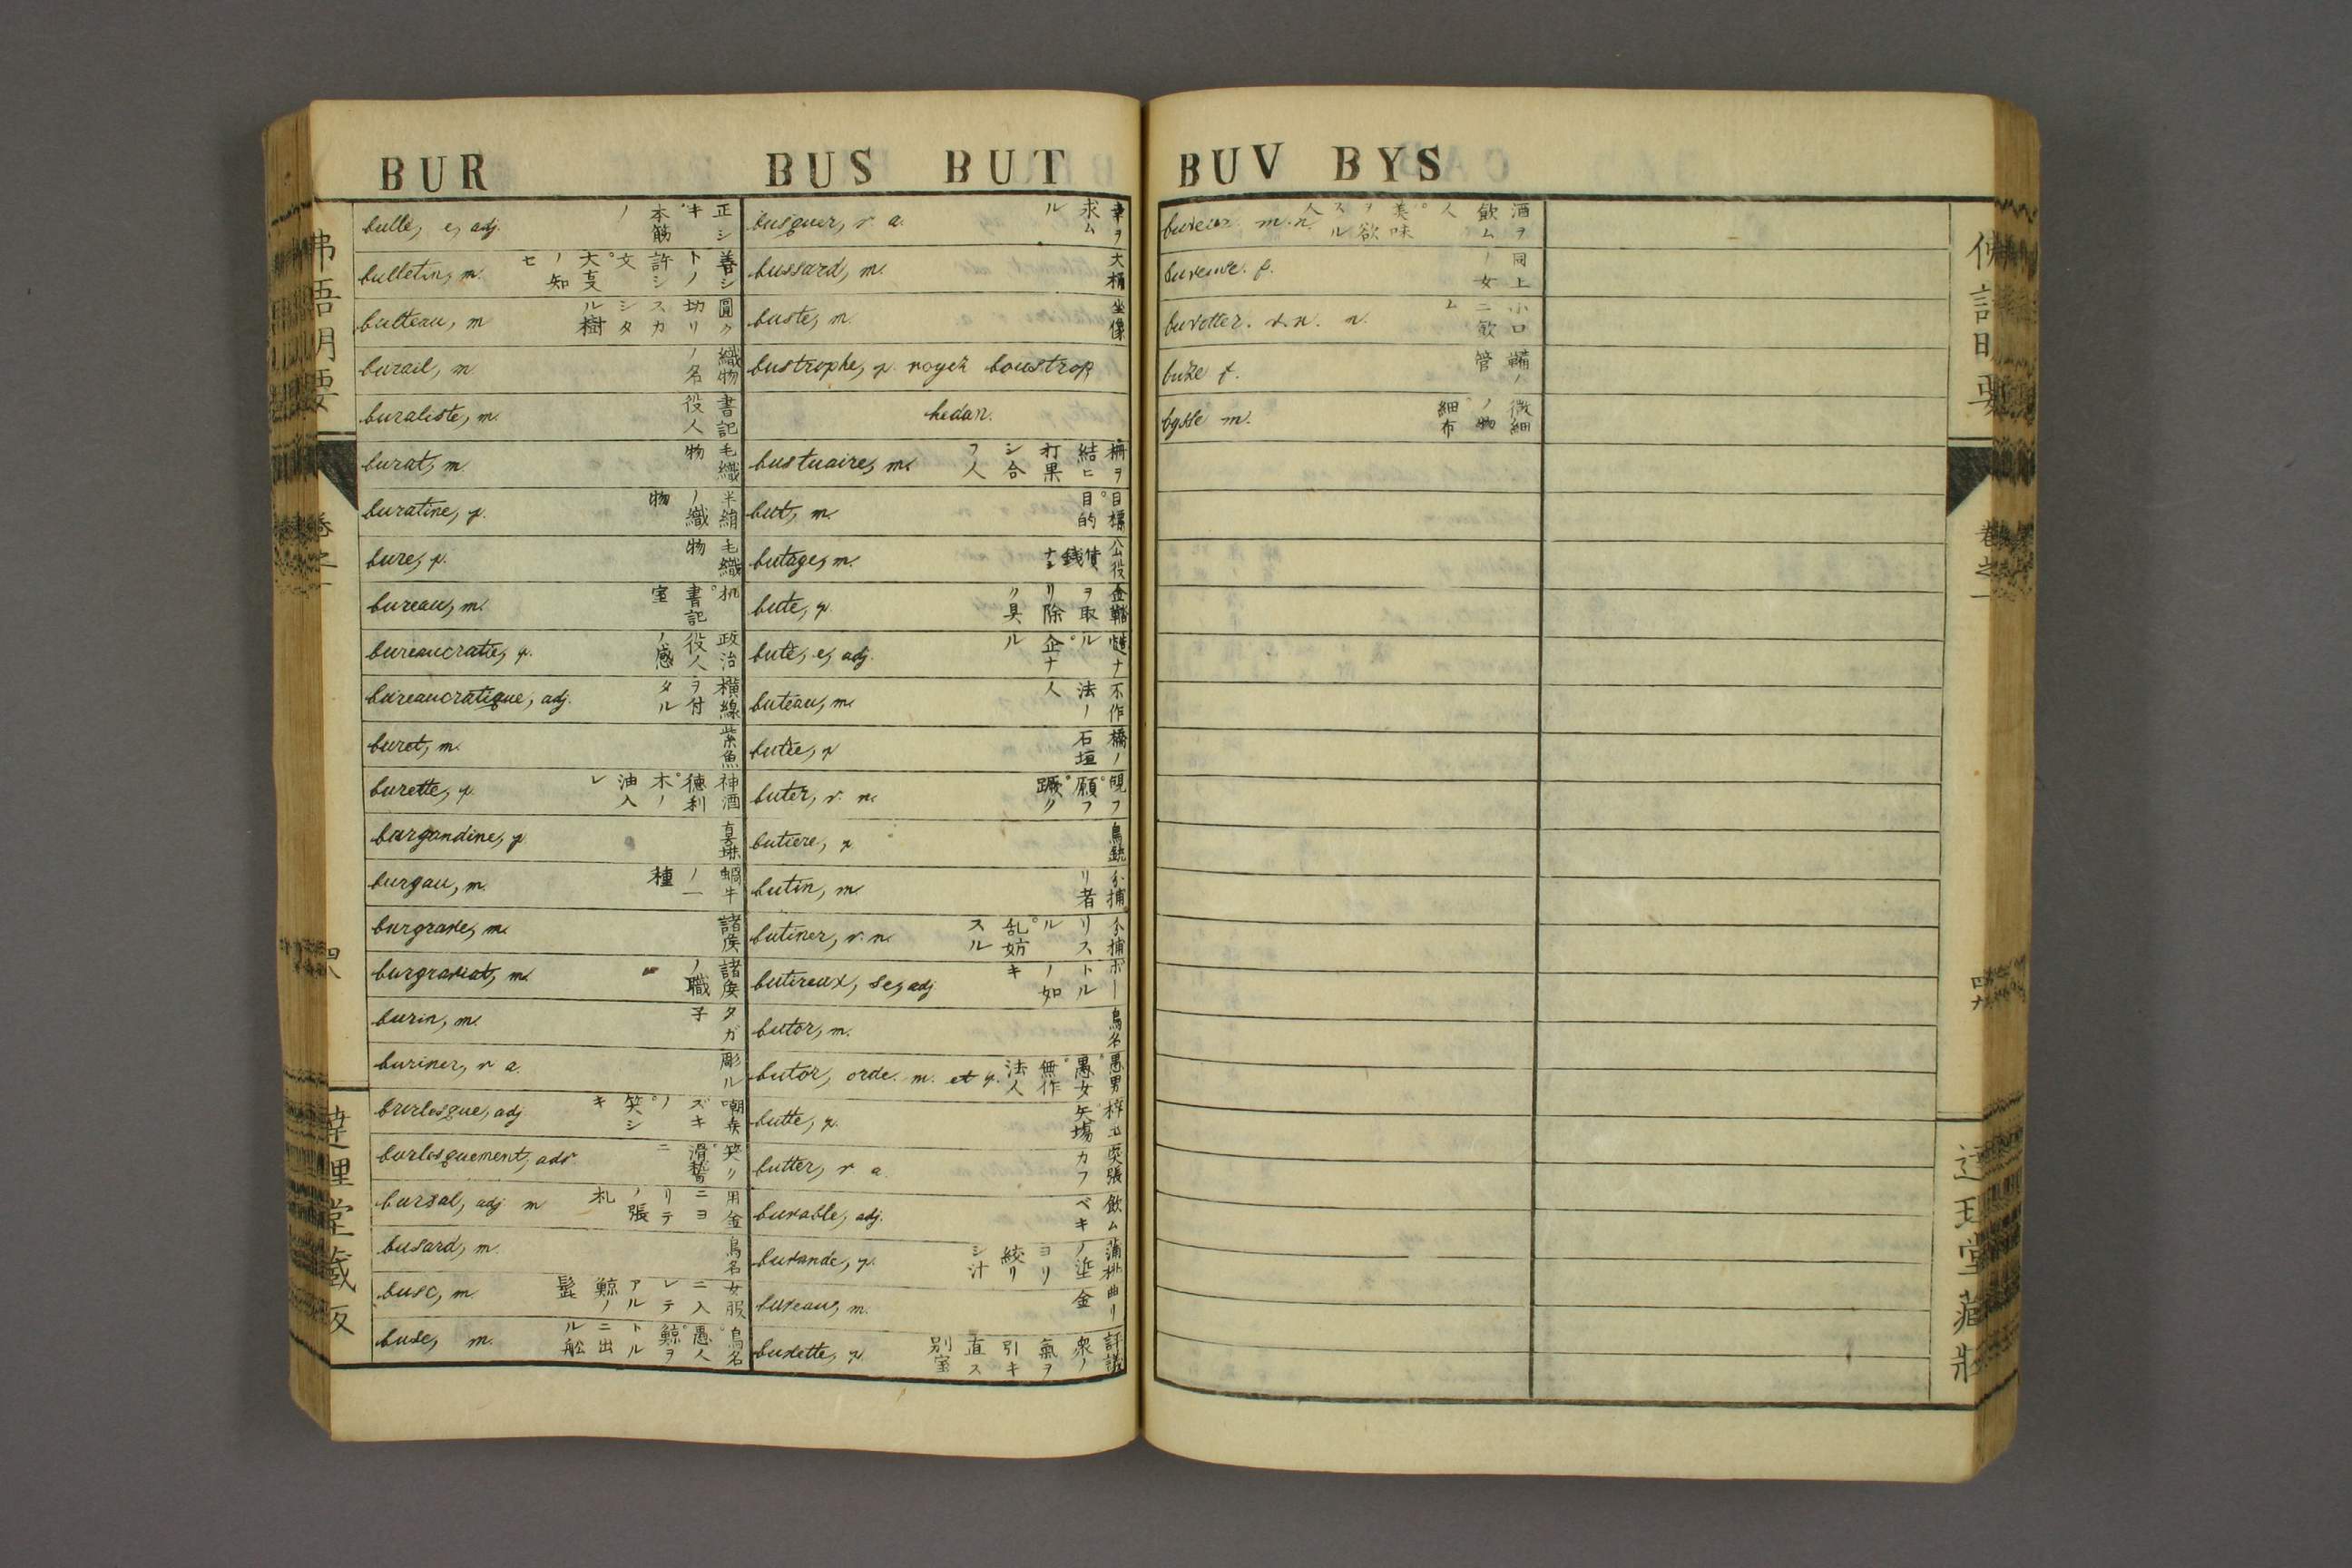 BUR
BUS BUT
bullé, e, adj. 正シキ。本筋ノ
bulletin, m. 善シトノ許シ文。大亥ノ知セ
bulteau, m 圓ク切リスカシタル樹
burail, m 織物ノ名
buraliste, m. 書記役人
burat, m. 毛織物
buratine, f. 半絹ノ織物
bure, f. 毛織物
bureau, m. 机。書記室
bureaucratie, f. 政治役人ノ感
bureaucratique, adj. 横線ヲ付タル
buret, m. 紫魚
burette, f. 神酒徳利。木ノ油入レ
burgandine, f 真珠
burgau, m. 蝸牛ノ一種
burgrave, m. 諸侯
burgraviat, m. 諸侯ノ職
burin, m. タガ子
buriner, v a. 彫ル
burlesque, adj ノ。笑シキ
burlesquement, adv. 笑ク。滑稽ニ
bursal, adj m 用金ニヨリテノ張札
busard, m. 鳥名
busc, m. 女服ニ入レテアル鯨ノ髭
buse, m. 鳥名。愚人。鯨ヲトルニ出ル舩
busquer, v. a. 幸ヲ求ムル
bussard, m. 大桶
buste, m. 坐像
bustrophe, f. voyez boustrop
hedan.
bustuaire, m. 柵ヲ結ヒ打果シ合フ人
but, m. 目標。目的
butage, m. 公役賃銭
bute, f. 金鞋ヲ取リ除ク具
buté, e, adj. ナル。企ナル
buteau, m. 不作法ノ人
butée, f 橋ノ石垣
buter, v. n. 覗フ。願フ。蹶ク
butiere, f 鳥銃
butin, m. 分捕リ者
butiner, v. n. 分捕リスル。乱妨スル
butireux, se, adj ボートルノ如キ
butor, m. 鳥名
butor, orde. m. et f. 愚男。愚女。無作法人
butte, f. 矢場
butter, v a. 突張カフ
buvable, adj. 飲ムベキ
buvande, f. ノ ヨリ絞リシ汁
buveau, m. 曲リ金
buvette, f. 評議衆ノ氣ヲ引キ直ス別室
弗語明要
達理堂蔵版
BUV BYS
buveur. m. n. 酒ヲ飲ム人。美味ヲ欲スル人
buveuse. f. 同上ノ女
buvotter. v. n. n. 小口ニ飲ム
buze f. 鞴ノ管
bysse m. 微細ノ物。細布
佛語明要
巻之一
達理堂蔵版